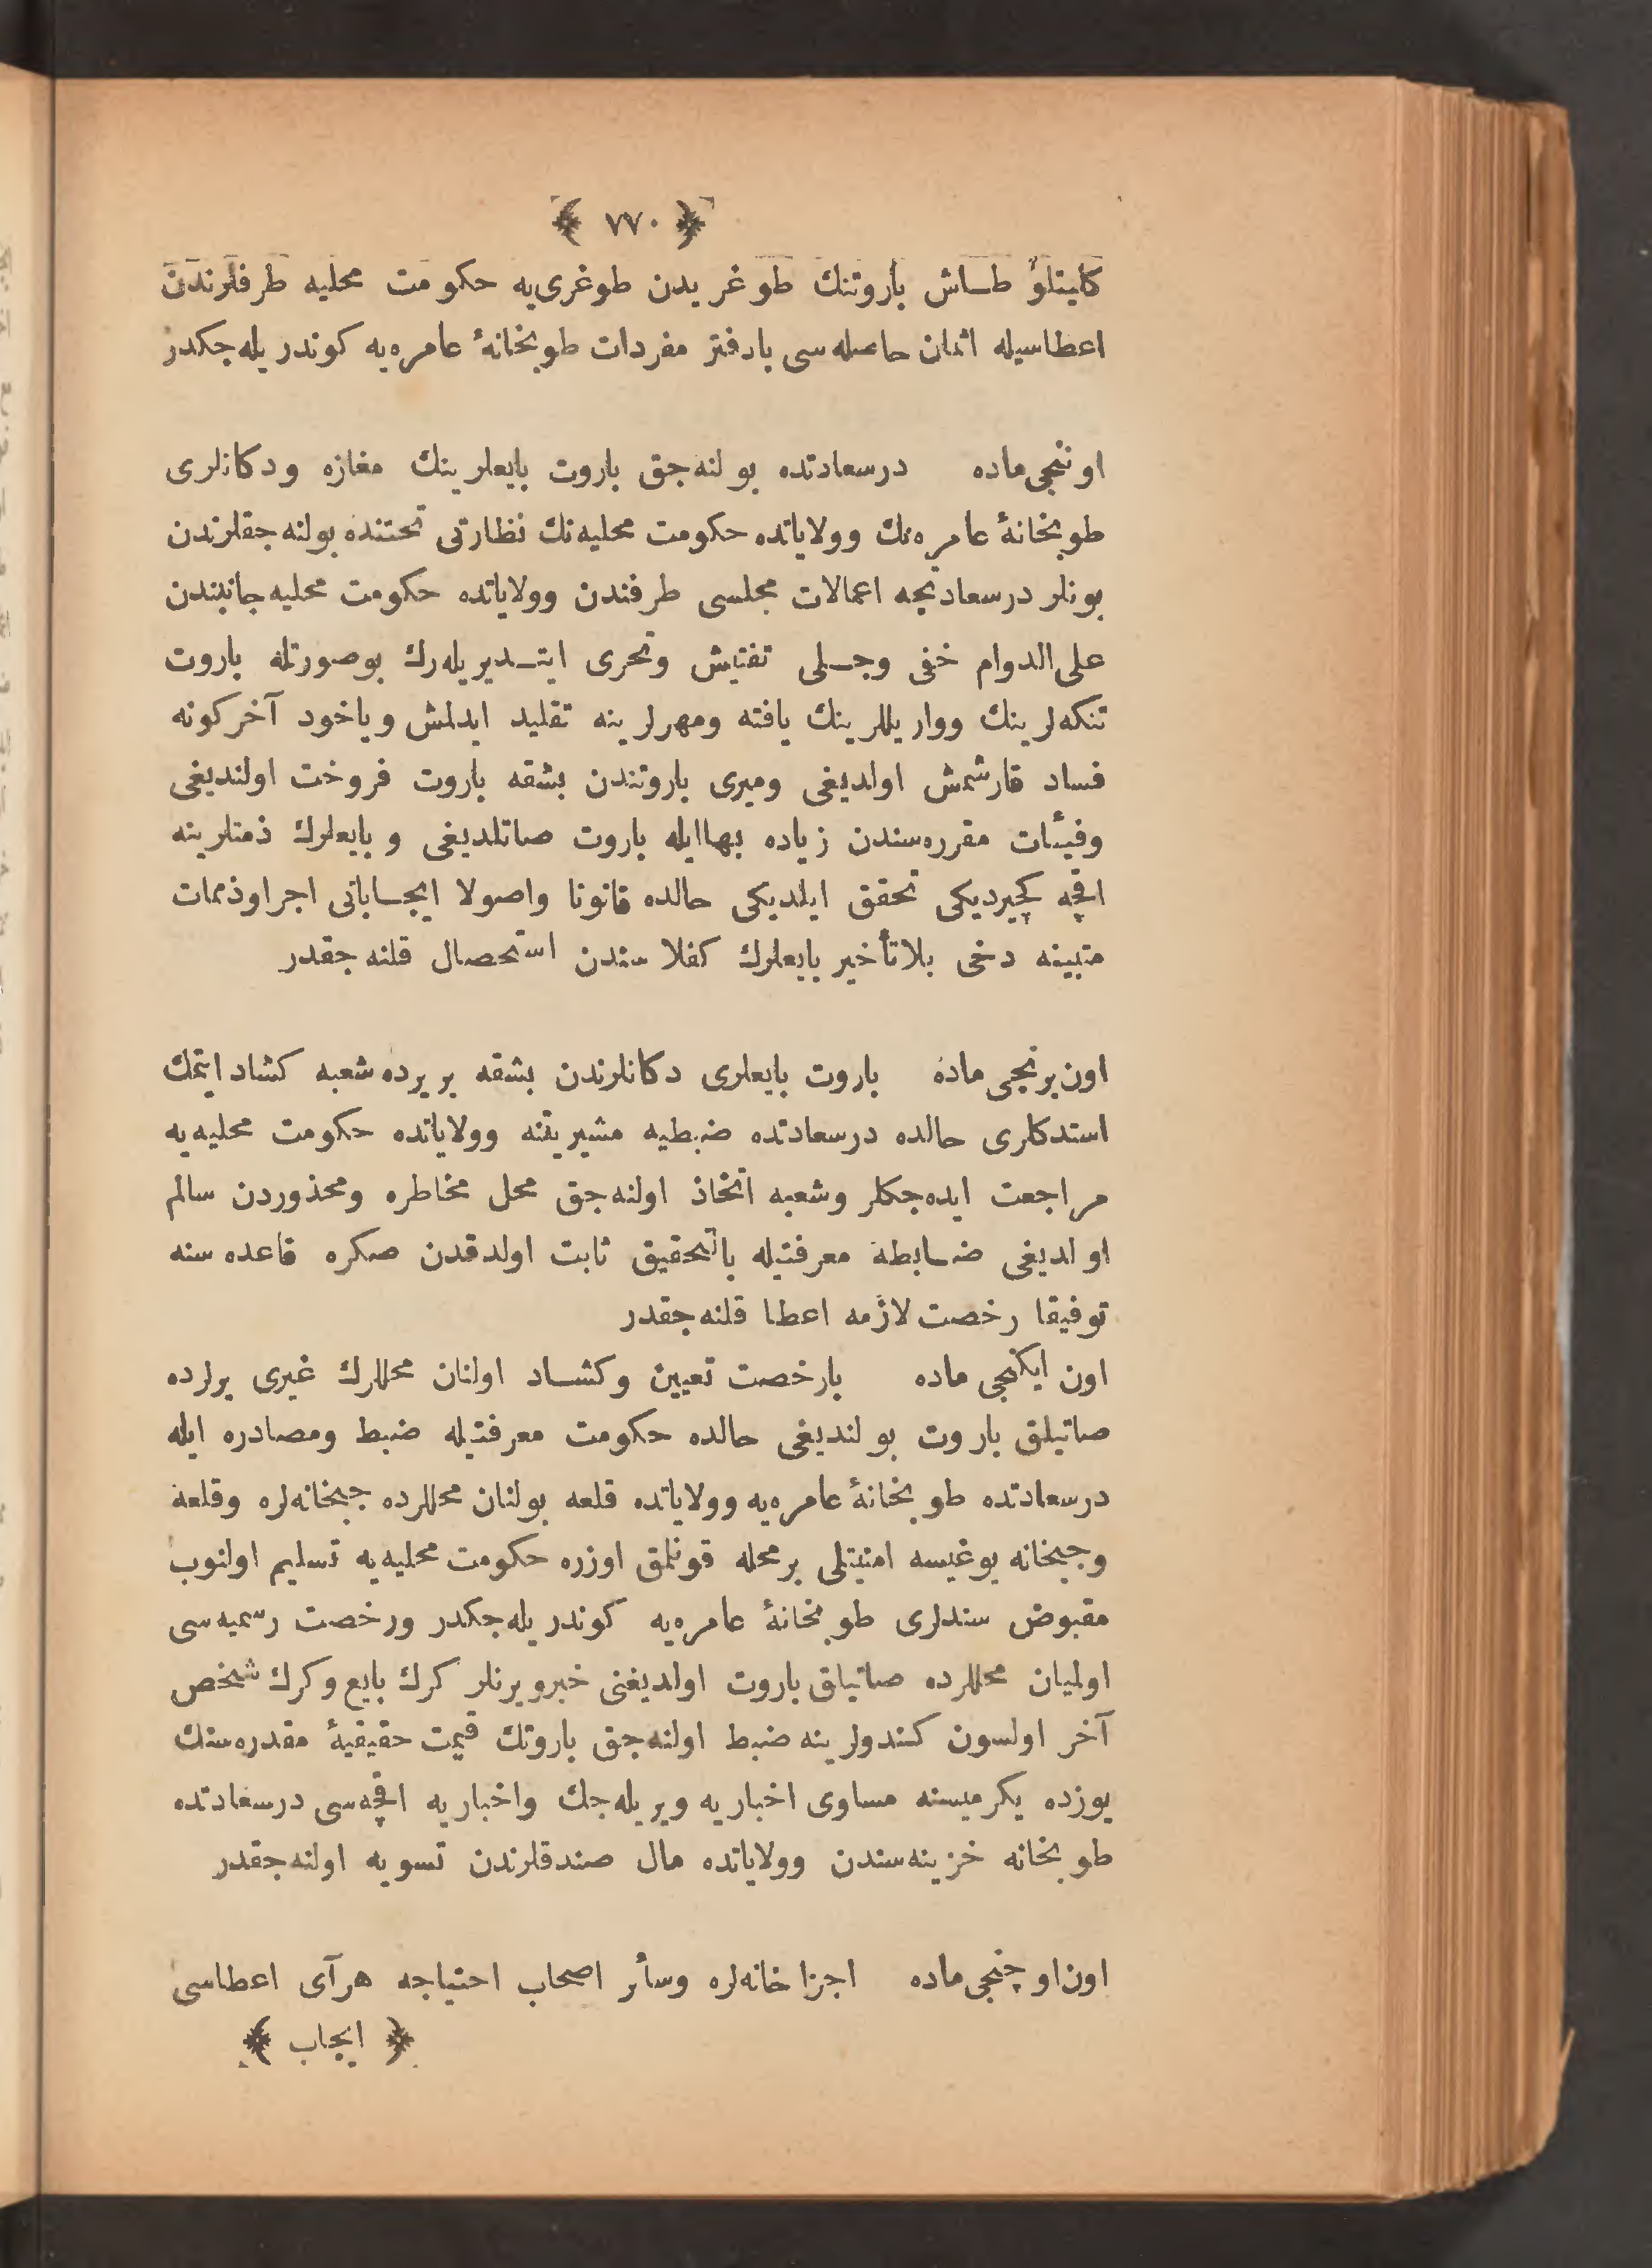 ﴿ ٧٧٠ ﴾
كليتلو طاش باروتنك طوغریدن طوغری‌یه حكومت محلیه طرفلرندن
اعطاسیله اثمان حاصله‌سی بادفتر مفردات طوپخانهٔ عامره‌یه كوندریله‌جكدر
اوننجی ماده درسعادتده بولنه‌جق باروت بایعلرینك مغازه ودكانلری
طوپخانهٔ عامره‌نك وولایاتده حكومت محلیه‌نك نظارتی تحتنده بولنه‌جقلرندن
بونلر درسعادتجه اعمالات مجلسی طرفندن وولایاتده حكومت محلیه جانبندن
علی‌الدوام خفی وجلی تفتیش وتحری ایتدیریله‌رك بوصورتله باروت
تنكه‌لرینك وواریللرینك یافته ومهرلرینه تقلید ایدلمش ویاخود آخركونه
فساد قارشمش اولدیغی ومیری باروتندن بشقه باروت فروخت اولندیغی
وفیئات مقرره‌سندن زیاده بهاایله باروت صاتلدیغی و بایعلرك ذمتلرینه
اقچه كچیردیكی تحقق ایلدیكی حالده قانونا واصولا ایجاباتی اجرا وذممات
متبینه دخی بلاتأخیر بایعلرك كفلاسندن استحصال قلنه‌جقدر
اون‌برنجی ماده باروت بایعلری دكانلرندن بشقه بریرده شعبه كشاد ایتمك
استدكلری حالده درسعادتده ضبطیه مشیریتنه وولایاتده حكومت محلیه‌یه
مراجعت ایده‌جكلر وشعبه اتخاذ اولنه‌جق محل مخاطره ومحذوردن سالم
اولدیغی ضابطه معرفتیله بالتحقیق ثابت اولدقدن صكره قاعده سنه
توفیقا رخصت لازمه اعطا قلنه‌جقدر
اون ایكنجی ماده بارخصت تعیین وكشاد اولنان محللرك غیری یرلرده
صاتیلق باروت بولندیغی حالده حكومت معرفتیله ضبط ومصادره ایله
درسعادتده طوپخانهٔ عامره‌یه وولایاتده قلعه بولنان محللرده جبخانه‌لره وقلعه
وجبخانه یوغیسه امنیتلی برمحله قونلمق اوزره حكومت محلیه‌یه تسلیم اولنوب
مقبوض سندلری طوپخانهٔ عامره‌یه كوندریله‌جكدر ورخصت رسمیه‌سی
اولمیان محللرده صاتیلق باروت اولدیغنی خبرویرنلر كرك بایع وكرك شخص
آخر اولسون كندولرینه ضبط اولنه‌جق باروتك قیمت حقیقیهٔ مقدره‌سنك
یوزده یكرمیسنه مساوی اخباریه ویریله‌جك واخباریه اقچه‌سی درسعادتده
طوپخانه خزینه‌سندن وولایاتده مال صندقلرندن تسویه اولنه‌جقدر
اون‌اوچنجی ماده اجزاخانه‌لره وسائر اصحاب احتیاجه هرآی اعطاسی
﴿ ایجاب ﴾